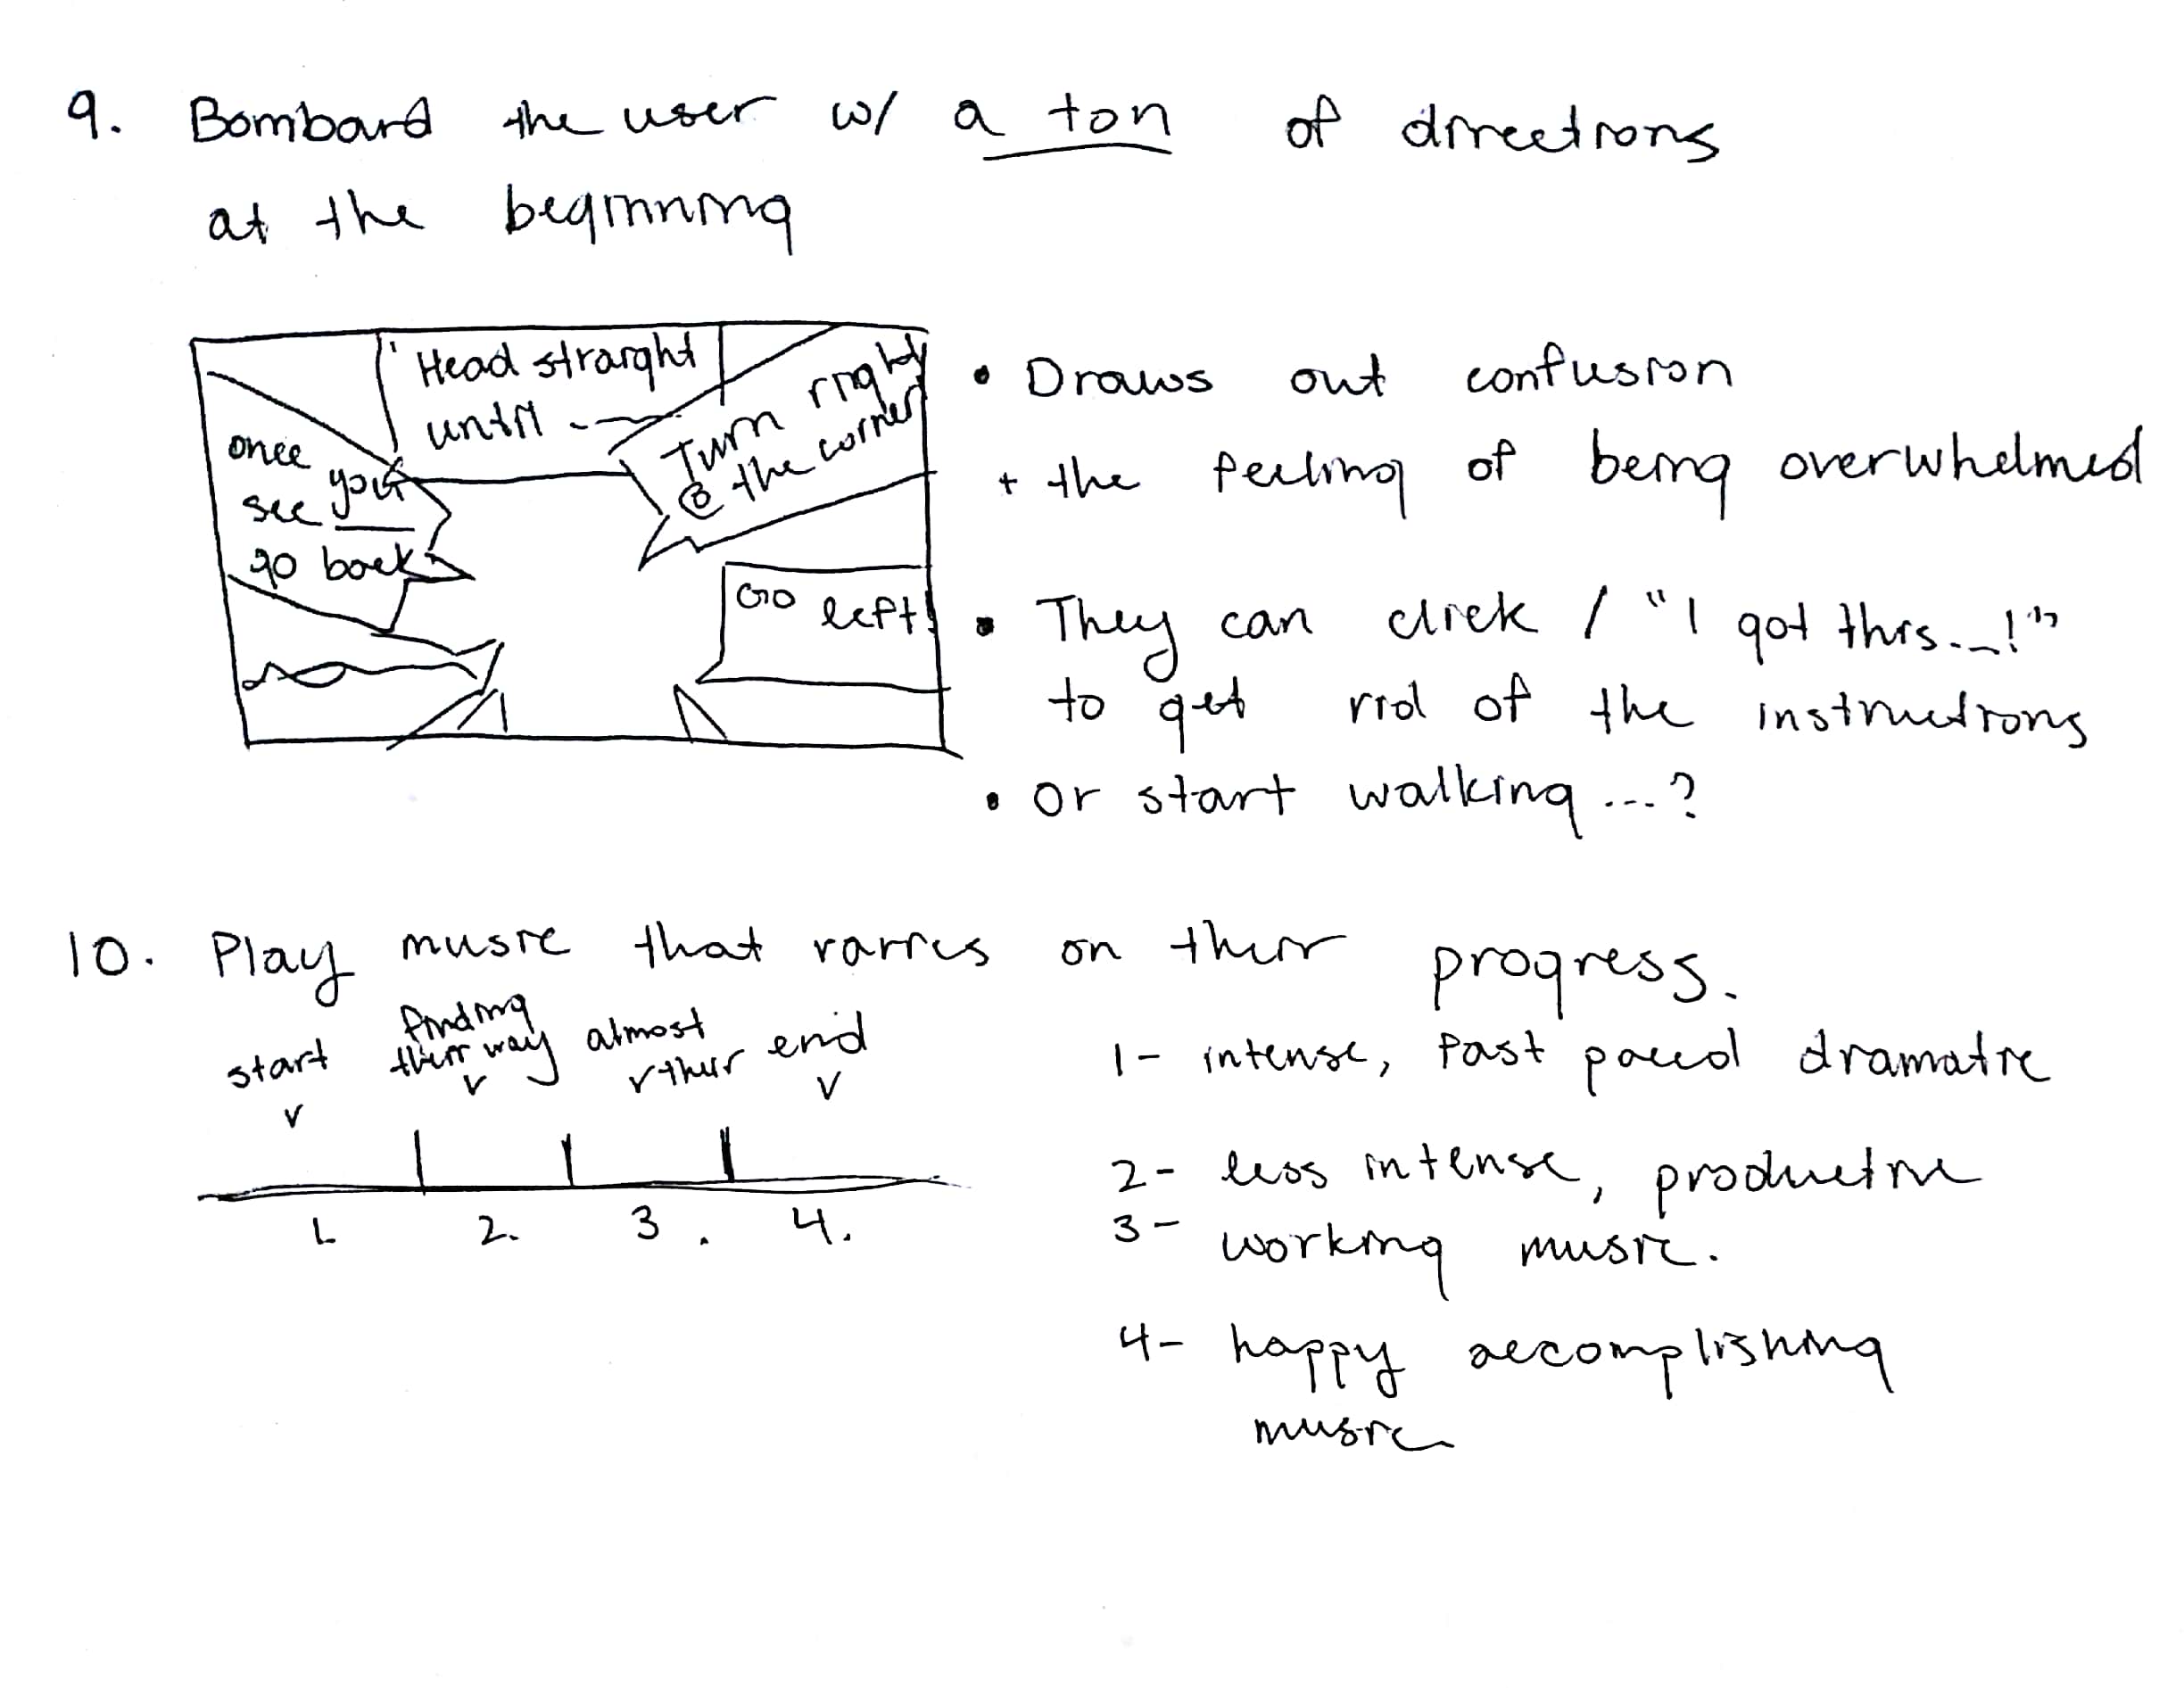 9. Bombard the user w/ a ton of directions
at the beginning
Head straight
until
Turn right
@ the corner
once
see you
go back
Go left!
• Draws out confusion
+ the feeling of being overwhelmed
• They can click / "I got this...!"
to get rid of the instructions
• Or start walking ...?
10. Play music that varies on their progress.
start
finding
their way
almost
ther
end
1. 2. 3. 4.
1- intense, fast paced dramatic
2- less intense, productive
3- working music.
4- happy accomplishing
music